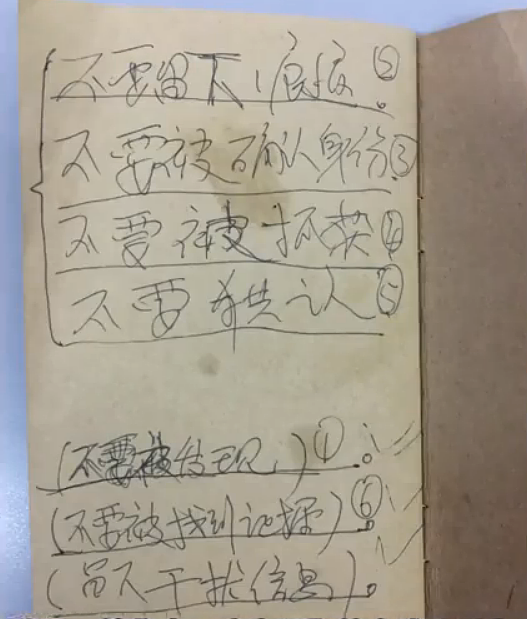 不要留下痕迹②
不要被确认身份③
不要被抓获④
不要供认⑤
(不要被发现)①
(不要被找到证据)⑥
(留下干扰信息)